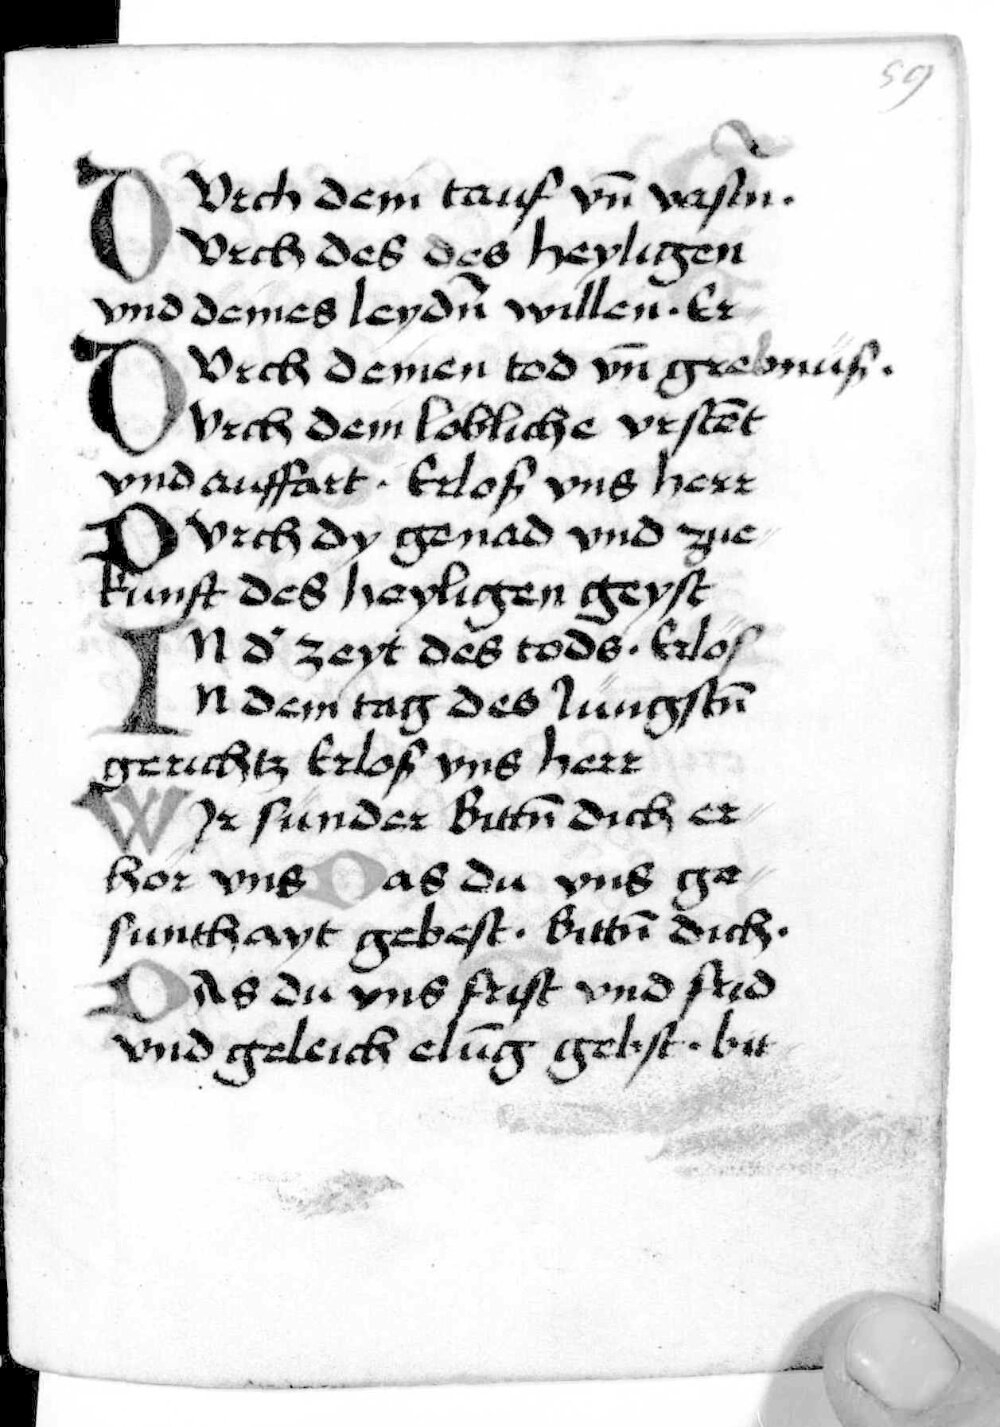 59
DVrch dein tauf vn̄ vastn̄.
DVrch des des heyligen
vnd deines leydn̄ willen. Er
DVrch deinen tod vn̄ grebnüß.
DVrch dein lobliche vrstēt
vnd auffart. Erloß vns herr
DVrch dy genad vnd zue
kunft des heyligen geyst
IN d' zeyt des tods. Erlös
IN dem tag des Jungstn̄
gerichtz Erloß vns herr
WIr sünder Bittn̄ dich er
hör vns Das du vns ge
sunthayt gebest. Bittn̄ dich.
DAs du vns frist vnd frid
vnd geleich elūg gebst. bit